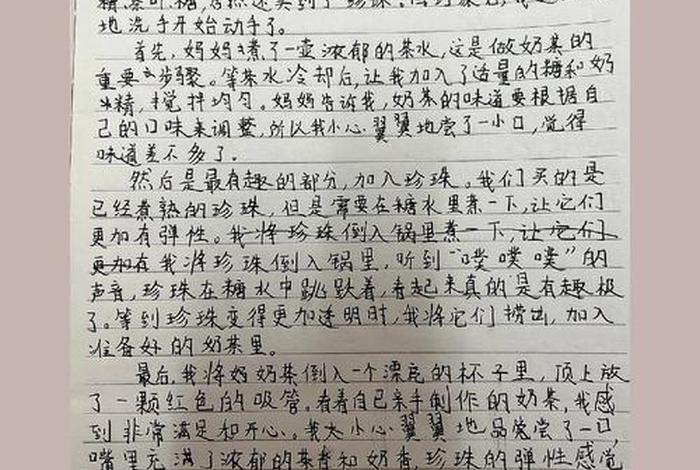 精、茶叶、糖,居然还买到了珍珠。
地洗手开始动手了。
首先,妈妈煮了一壶浓郁的茶水,这是做奶茶的
重要步骤。等茶水冷却后,让我加入了适量的糖和奶
精,搅拌均匀。妈妈告诉我,奶茶的味道要根据自
己的口味来调整,所以我小心翼翼地尝了一小口,觉得
味道差不多了。
然后是最有趣的部分,加入珍珠。我们买的是
已经煮熟的珍珠,但是需要在糖水里煮一下,让它们
更加有弹性。我将珍珠倒入锅里煮一下,让它们
更加有我将珍珠倒入锅里,听到“噗噗噗”的
声音,珍珠在糖水中跳跃着,看起来真的是有趣极
了。等到珍珠变得更加透明时,我将它们捞出,加入
准备好的奶茶里。
最后,我将奶奶茶倒入一个漂亮的杯子里,顶上放
了一颗红色的吸管。看着自己亲手制作的奶茶,我感
到非常满足和开心。我太小心翼翼地品尝了一口,
嘴里充满了浓郁的茶香和奶香,珍珠的弹性感觉